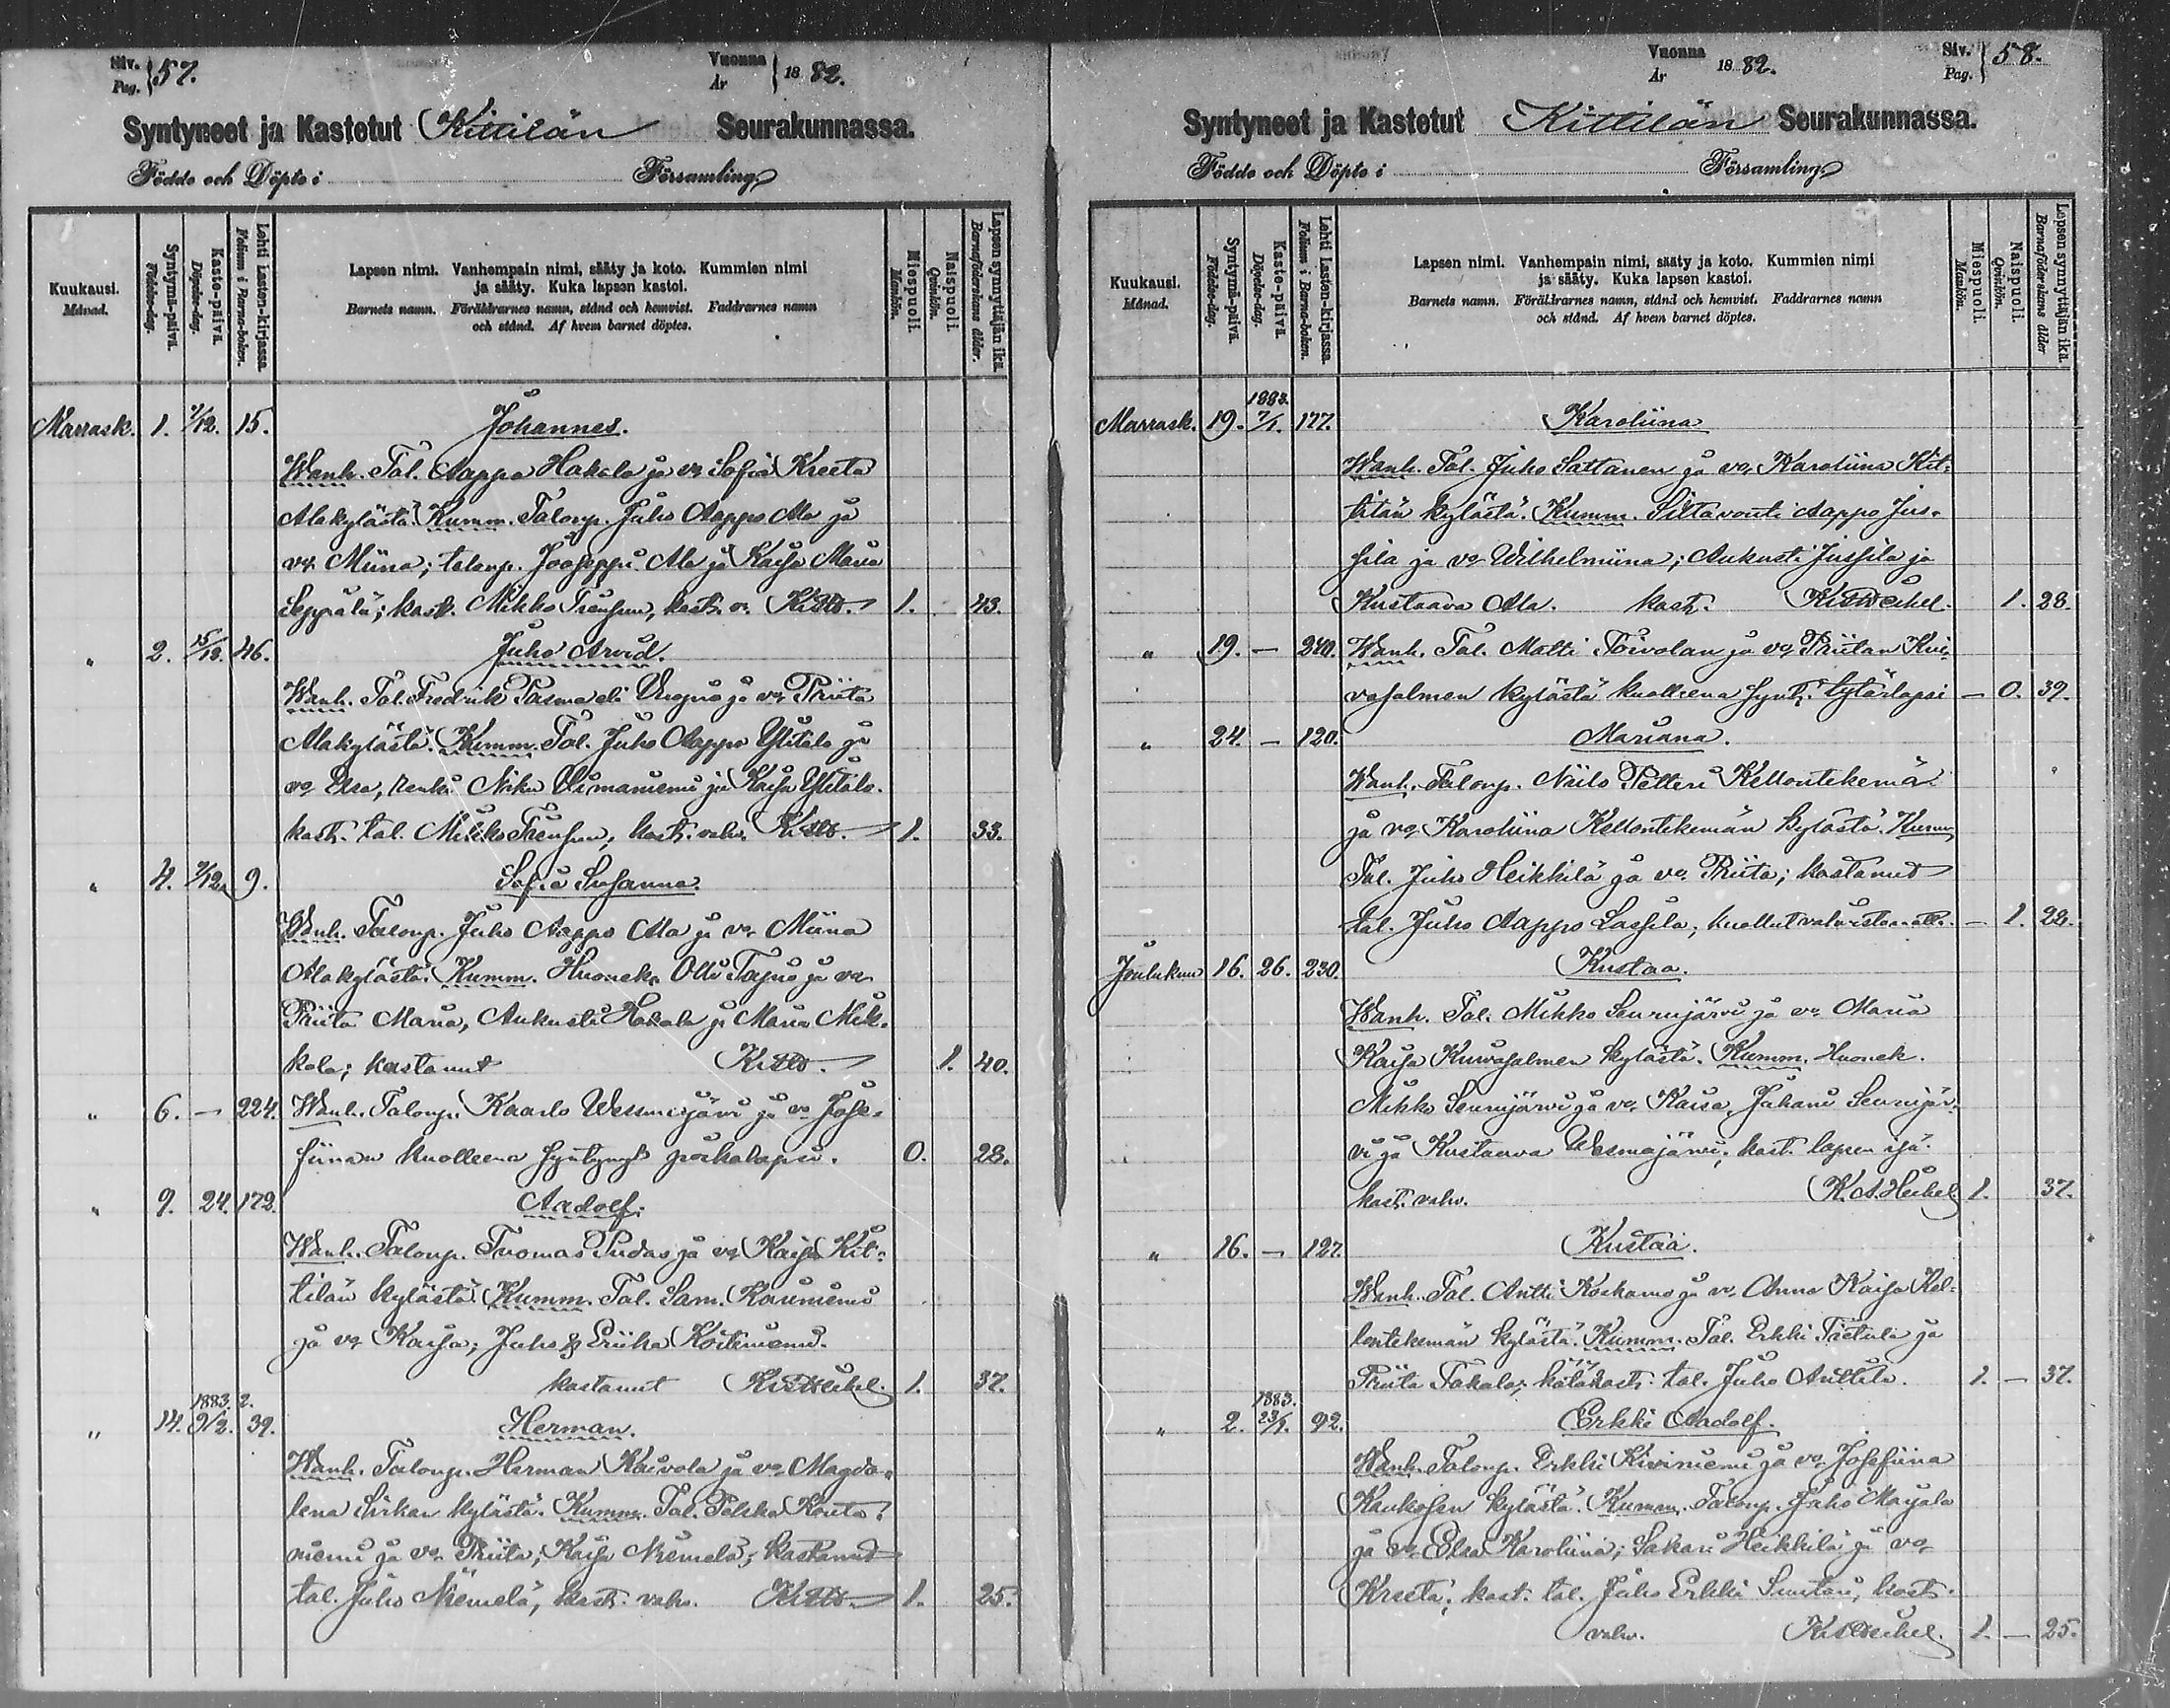 Siv. Pag. 57.
Vuonna År 1882.
Syntyneet ja Kastetut Kittilän Seurakunnassa.
Födde och Döpte i Församling
Kuukausi. Månad.
Syntymä-päivä. Födelse-dag.
Kaste-päivä. Döpelse-dag.
Lehti Lasten-kirjassa. Folium i Barna-boken.
Lapsen nimi. Vanhempain nimi, sääty ja koto. Kummien nimi
ja sääty. Kuka lapsen kastoi.
Barnets namn. Föräldrarnes namn, stånd och hemvist. Faddrarnes namn
och stånd. Af hvem barnet döptes.
Miespuoli. Mankön.
Naispuoli. Qvinkön.
Lapsen synnyttäjän ikä. Barnaföderskans ålder.
Marrask. 1. 7/12. 15. Johannes.
Wanh. Tal. Aappo Hakala ja vo Sofia Kreeta
Alakylästä. Kumm. Talonp. Juho Aappo Ala ja
vo. Miina; talonp. Jooseppi Ala ja Kaisa Maria
Seppälä; kast. Mikko, kast. v. 1. 43.
" 2. 15/12. 46. Juho Arvid.
Wanh. Tal. Fredrik Pasma eli ja vo Priita
Alakylästä. Kumm. Tal. Juho Aappo Ylitalo ja
vo Elsa, renki Niku ja Kaisa Ylitalo.
kast. tal. Mikko, kast. vahv. 1. 33.
" 4. 7/12. 9. Sofia Susanna.
Wanh. Talonp. Juho Aappo Ala ja vo. Miina
Alakylästä. Kumm. Huonek. Olli ja vo
Priita Maria, Aukusti Hakala ja Maria Mik-
kola; kastanut 1. 40.
" 6. — 224. Wanh. Talonp. Kaarlo Wesmajärvi ja vo Jose-
fiinan kuolleena syntynyt poikalapsi. 0. 28.
" 9. 24. 172. Aadolf.
Wanh. Talonp. Tuomas Pudas ja vo Kaisa Kit-
tilän kylästä. Kumm. Tal. Sam. Kauniemi
ja vo Kaisa; Juho & Eriika Koitiniemi.
kastanut 1. 37.
" 14. 1883. 9/2. 2. 39. Herman.
Wanh. Talonp. Herman Kaivola ja vo. Magda-
lena Sirkan kylästä. Kumm. Tal. Pekka Kouta-
niemi ja vo. Priita; Kaisa Niemelä; kastanut
tal. Juho Niemelä, kast. vahv. 1. 25.
Vuonna År 1882.
Siv. Pag. 58.
Syntyneet ja Kastetut Kittilän Seurakunnassa.
Födde och Döpte i Församling
Kuukausi. Månad.
Syntymä-päivä. Födelse-dag.
Kaste-päivä. Döpelse-dag.
Lehti Lasten-kirjassa. Folium i Barna-boken.
Lapsen nimi. Vanhempain nimi, sääty ja koto. Kummien nimi
ja sääty. Kuka lapsen kastoi.
Barnets namn. Föräldrarnes namn, stånd och hemvist. Faddrarnes namn
och stånd. Af hvem barnet döptes.
Miespuoli. Mankön.
Naispuoli. Qvinkön.
Lapsen synnyttäjän ikä. Barnaföderskans ålder
Marrask. 19. 1883. 7/1. 177. Karoliina
Wanh. Tal. Juho Sattanen ja vo, Karoliina Kit-
tilän kylästä. Kumm. Siltavouti Aappo Jus-
sila ja vo Wilhelmiina; Aukusti Jussila ja
Kustaava Ala. kast. 1. 28.
" 19. — 240. Wanh. Tal. Matti Toivolan ja vo, Priitan Kui-
vasalmen kylästä kuolleena synt. tytärlapsi — 0. 39.
" 24. — 120. Mariana.
Wanh. Talonp. Niilo Petteri Kellontekemä
ja vo. Karoliina Kellontekemän kylästä. Kumm.
Tal. Juho Heikkilä ja vo. Priita; kastanut
tal. Juho Aappo Lassila, kuollut vahvistamatta. — 1. 28.
Joulukuu 16. 26. 230. Kustaa.
Wanh. Tal. Mikko Seurujärvi ja vo. Maria
Kaisa Kuivasalmen kylästä. Kumm. Huonek.
Mikko Seurujärvi ja vo. Kaisa, Juhani Seurujär-
vi ja Kustaava Wesmajärvi; kast. lapsen isä.
kast. vahv. K. A. Heikel 1. 37.
" 16. — 127. Kustaa.
Wanh. Tal. Antti Korhamo ja vo, Anna Kaisa Kel-
lontekemän kylästä. Kumm. Tal. Erkki ja
Priita Takala; hätäkast. tal. Juho Anttila. 1. — 37.
" 2. 1883. 23/1. 92. Erkki Aadolf.
Wanh. Talonp. Erkki Kiviniemi ja vo. Josefiina
Kaukosen kylästä. Kumm. Talonp. Juho Majala
ja vo Elsa Karoliina; Sakari Heikkilä ja vo
Kreeta; kast. tal. Juho Erkki, kast.
vahv. 1. — 25.